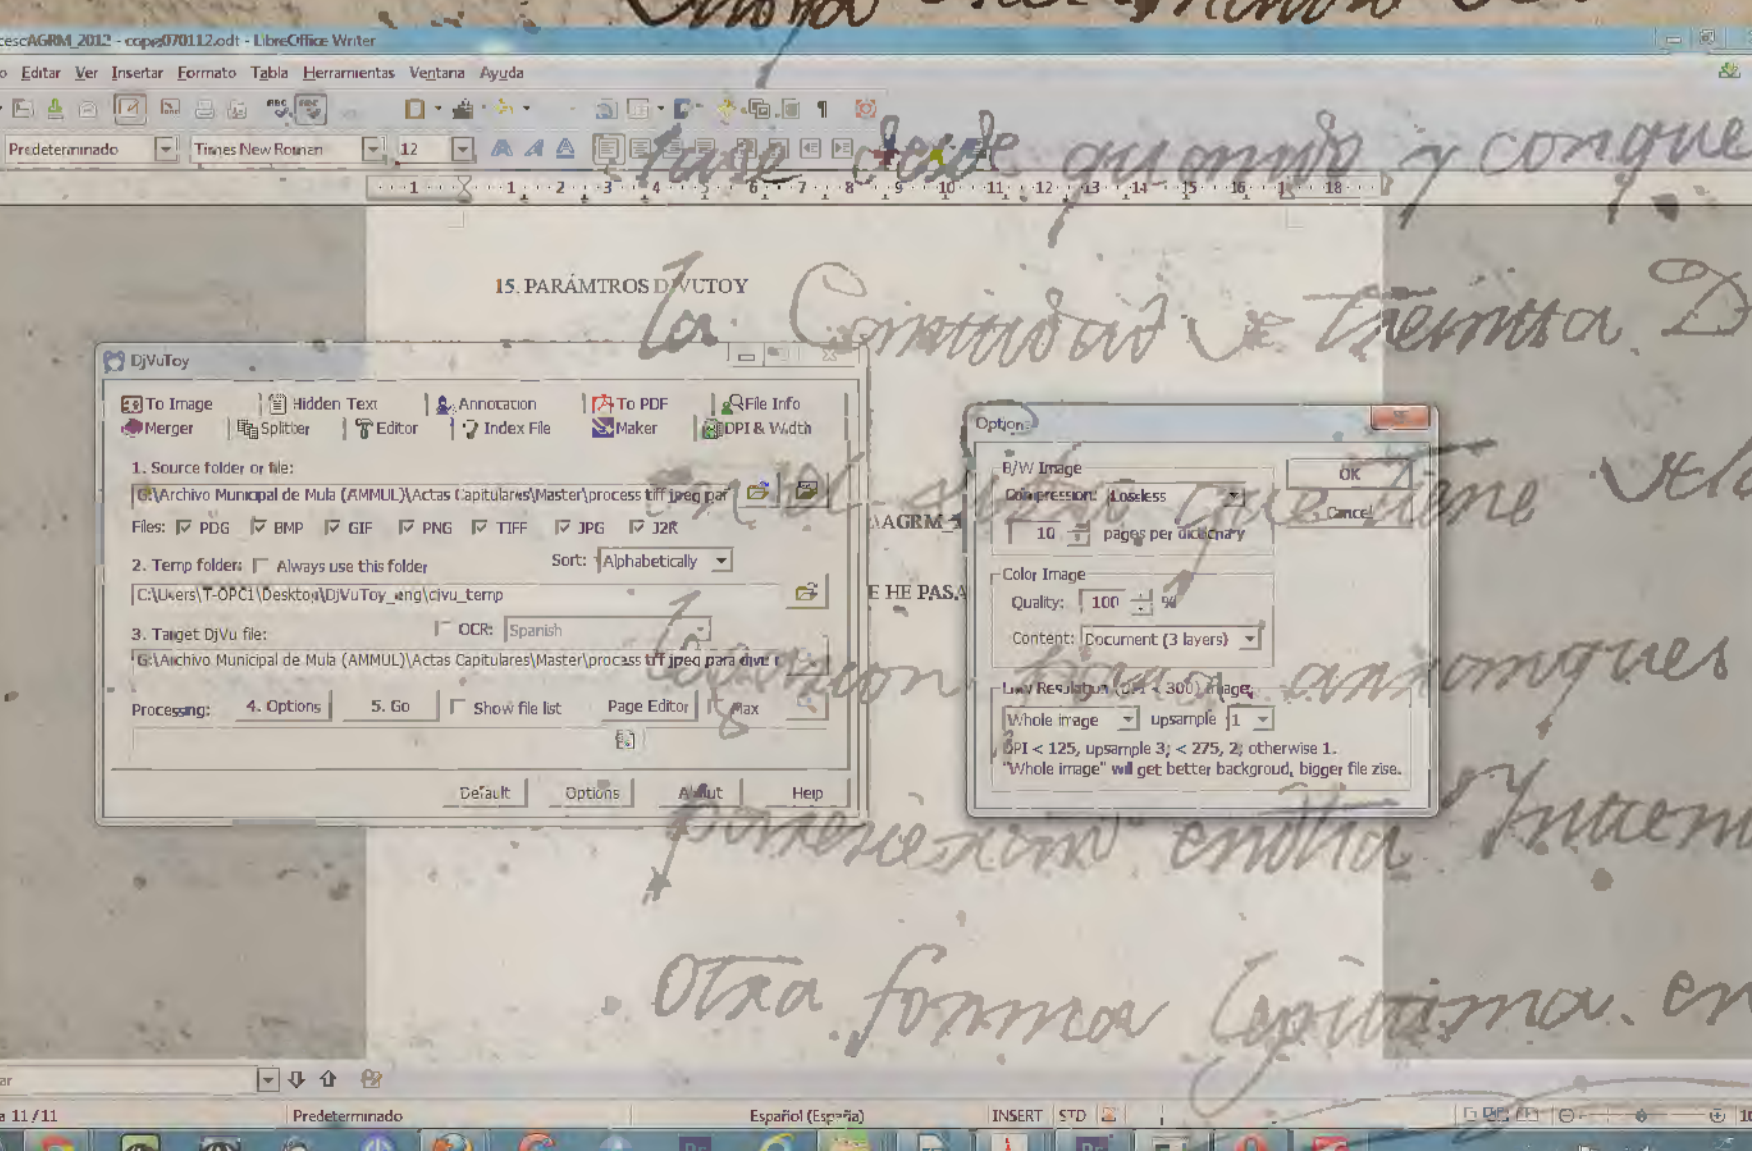 cescAGRM_2012 - copej070112.odt - LibreOffice Writer
o Editar Ver Insertar Formato Tabla Herramientas Ventana Ayuda
Predeterminado Times New Roman 12
1 1 2 3 4 5 6 7 8 9 10 11 12 13 14 15 16 18
desde quando y conque
15. PARÁMTROS DJVUTOY
la Cantidad de treintta D
DjVuToy
To Image Hidden Text Annotation To PDF File Info
Merger Splitter Editor Index File Maker DPI & Width
1. Source folder or file:
G:\Archivo Municipal de Mula (AMMUL)\Actas Capitulares\Master\process tiff jpeg par
Files: PDG BMP GIF PNG TIFF JPG J2K
2. Temp folder: Always use this folder Sort: Alphabetically
C:\Users\T-OPC1\Desktop\DjVuToy_eng\djvu_temp
3. Target DjVu file: OCR: Spanish
G:\Archivo Municipal de Mula (AMMUL)\Actas Capitulares\Master\process tiff jpeg para djvu
Processing: 4. Options 5. Go Show file list Page Editor Max
Default Options About Help
\AGRM_
E HE PASA
Options
B/W Image
Compression: Lossless
10 pages per dictionary
OK
Cancel
Color Image
Quality: 100 %
Content: Document (3 layers)
Low Resolution (DPI < 300) Image
Whole image upsample 1
DPI < 125, upsample 3; < 275, 2; otherwise 1.
"Whole image" will get better backgroud, bigger file zise.
que tiene
otra forma lejitima en
11 / 11 Predeterminado Español (España) INSERT STD